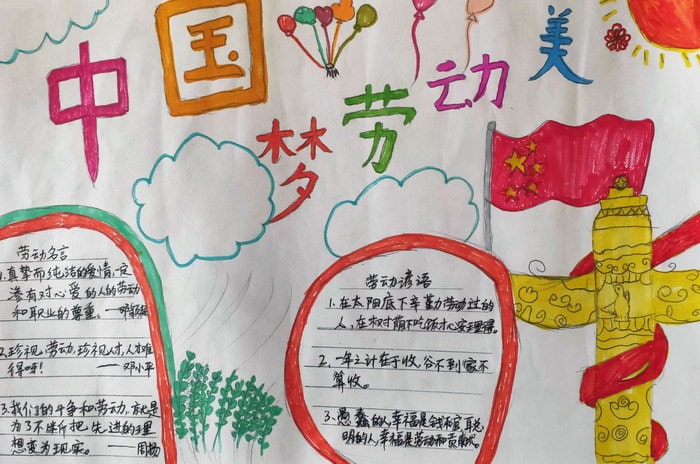 中国梦劳动美
劳动名言
1.真挚而纯洁的爱情,一定
渗有对心爱的人的劳动
和职业的尊重。
2.珍视劳动,珍视人才,人才难
得呀! ——邓小平
3.我们的斗争和劳动,就是
为了不断把先进的理
想变为现实。——周扬
劳动谚语
1.在太阳底下辛勤劳动过的
人,在树荫下吃饭才心安理得。
2.一年之计在于收,谷不到家不
算收。
3.愚蠢的人,幸福是金钱和官,聪
明的人,幸福是劳动和贡献。